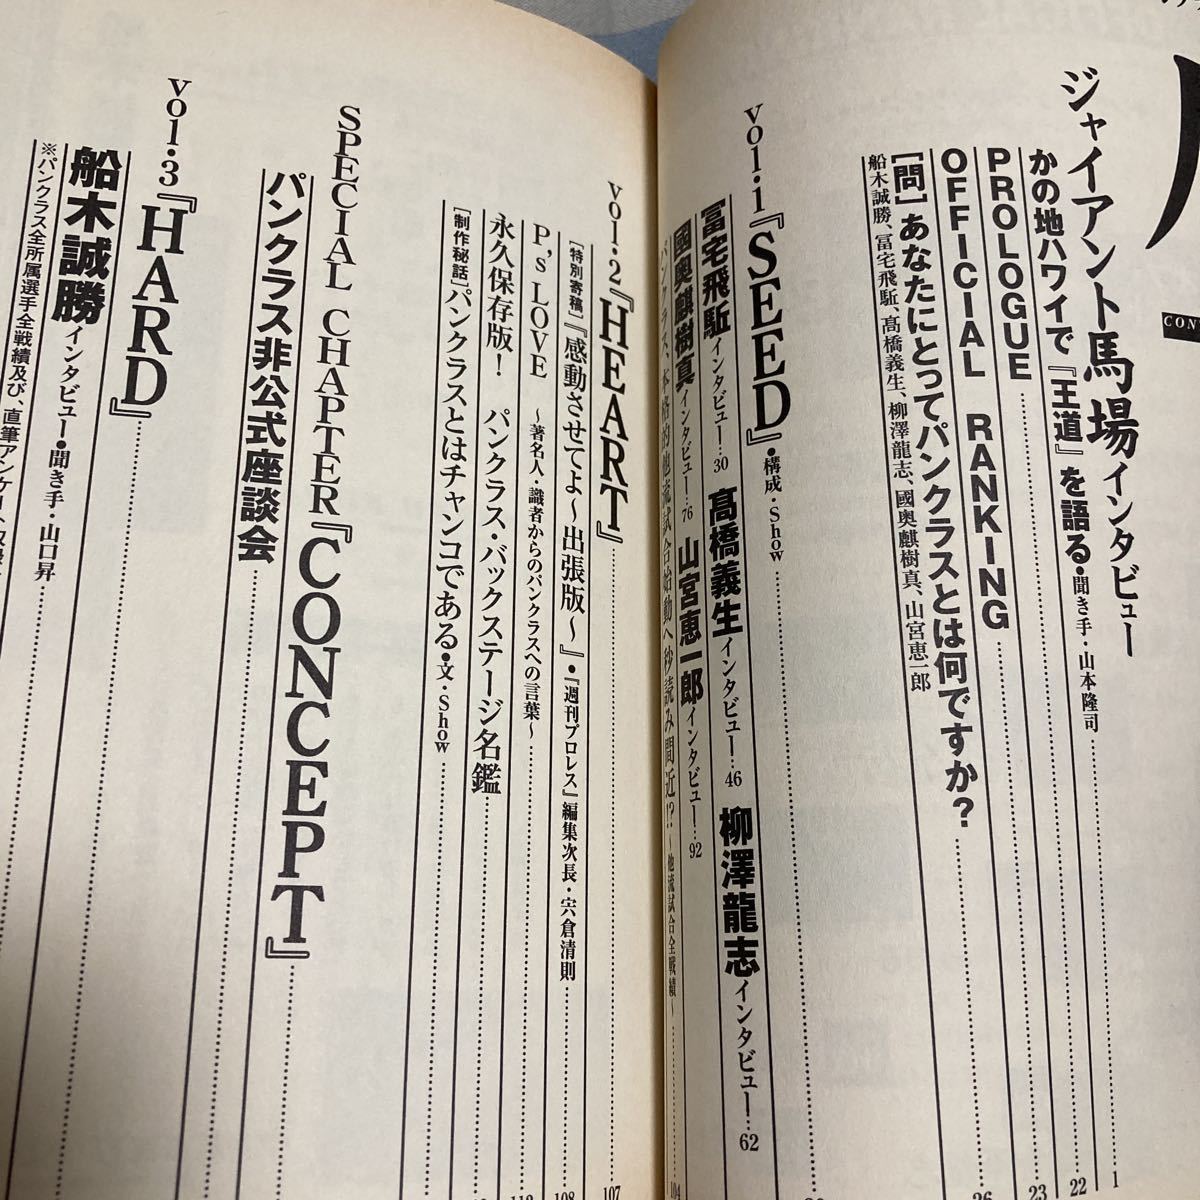 CONT
ジャイアント馬場インタビュー
かの地ハワイで『王道』を語る●聞き手・山本隆司 1
PROLOGUE 22
OFFICIAL RANKING 23
[問]あなたにとってパンクラスとは何ですか? 26
船木誠勝、冨宅飛駈、髙橋義生、柳澤龍志、國奥麒樹真、山宮恵一郎
vol.1『SEED』●構成・Show
冨宅飛駈インタビュー…30 髙橋義生インタビュー…46 柳澤龍志インタビュー…62
國奥麒樹真インタビュー…76 山宮恵一郎インタビュー…92
パンクラス、本格的他流試合始動へ秒読み間近!?～他流試合全戦績～ 104
vol.2『HEART』 107
[特別寄稿]『感動させてよ～出張版～』●『週刊プロレス』編集次長・宍倉清則 108
P's LOVE ～著名人・識者からのパンクラスへの言葉～ 112
永久保存版! パンクラス・バックステージ名鑑
[制作秘話]パンクラスとはチャンコである●文・Show
SPECIAL CHAPTER『CONCEPT』
パンクラス非公式座談会
vol.3『HARD』
船木誠勝インタビュー●聞き手・山口昇
※パンクラス全所属選手全戦績及び、直筆アンケート